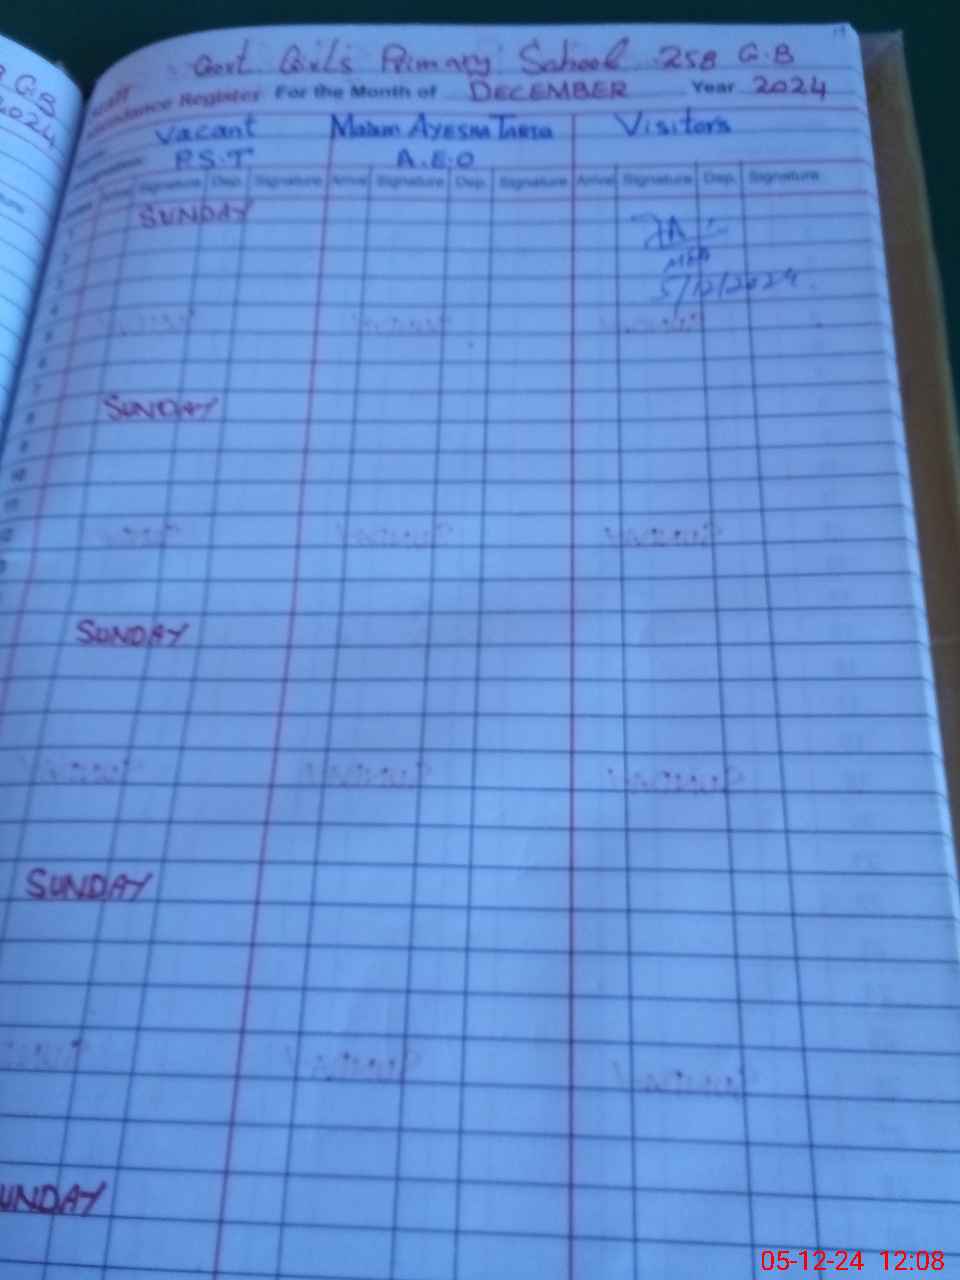 Govt. Girls Primary School 258 G.B
Staff
Attendance Register For the Month of DECEMBER Year 2024
G.B
2024
Vacant Madam AYESHA TARIQ Visitors
P.S.T A.E.O
Signature Dep. Signature Arrival Signature Dep. Signature Arrival Signature Dep. Signature
1 SUNDAY
2
MEA
3
5/12/2024.
4
5
6
7
8 SUNDAY
9
10
11
12
SUNDAY
SUNDAY
SUNDAY
05-12-24 12:08